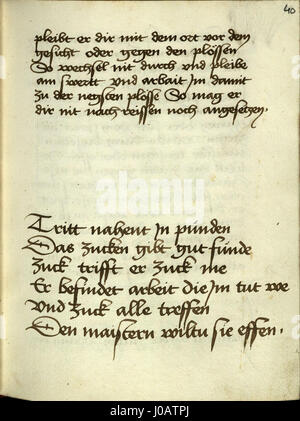 40
pleibt er dir mit dem ort vor dem
gesicht oder gegen den plössen
So wechsel nit durch vnd pleibe
am swertt vnd arbait Jm damit
zu der negsten plösse So mag er
dir nit nach reissen noch angesetzen.
Tritt nahent Jn pünden
Das zucken gibt gut fünde
Zuck trifft er zuck me
Er befindet arbeit die Jm tut we
Vnd zuck alle treffen
Den maistern wiltu sie effen.
alamy
alamy stock photo
J0ATPJ